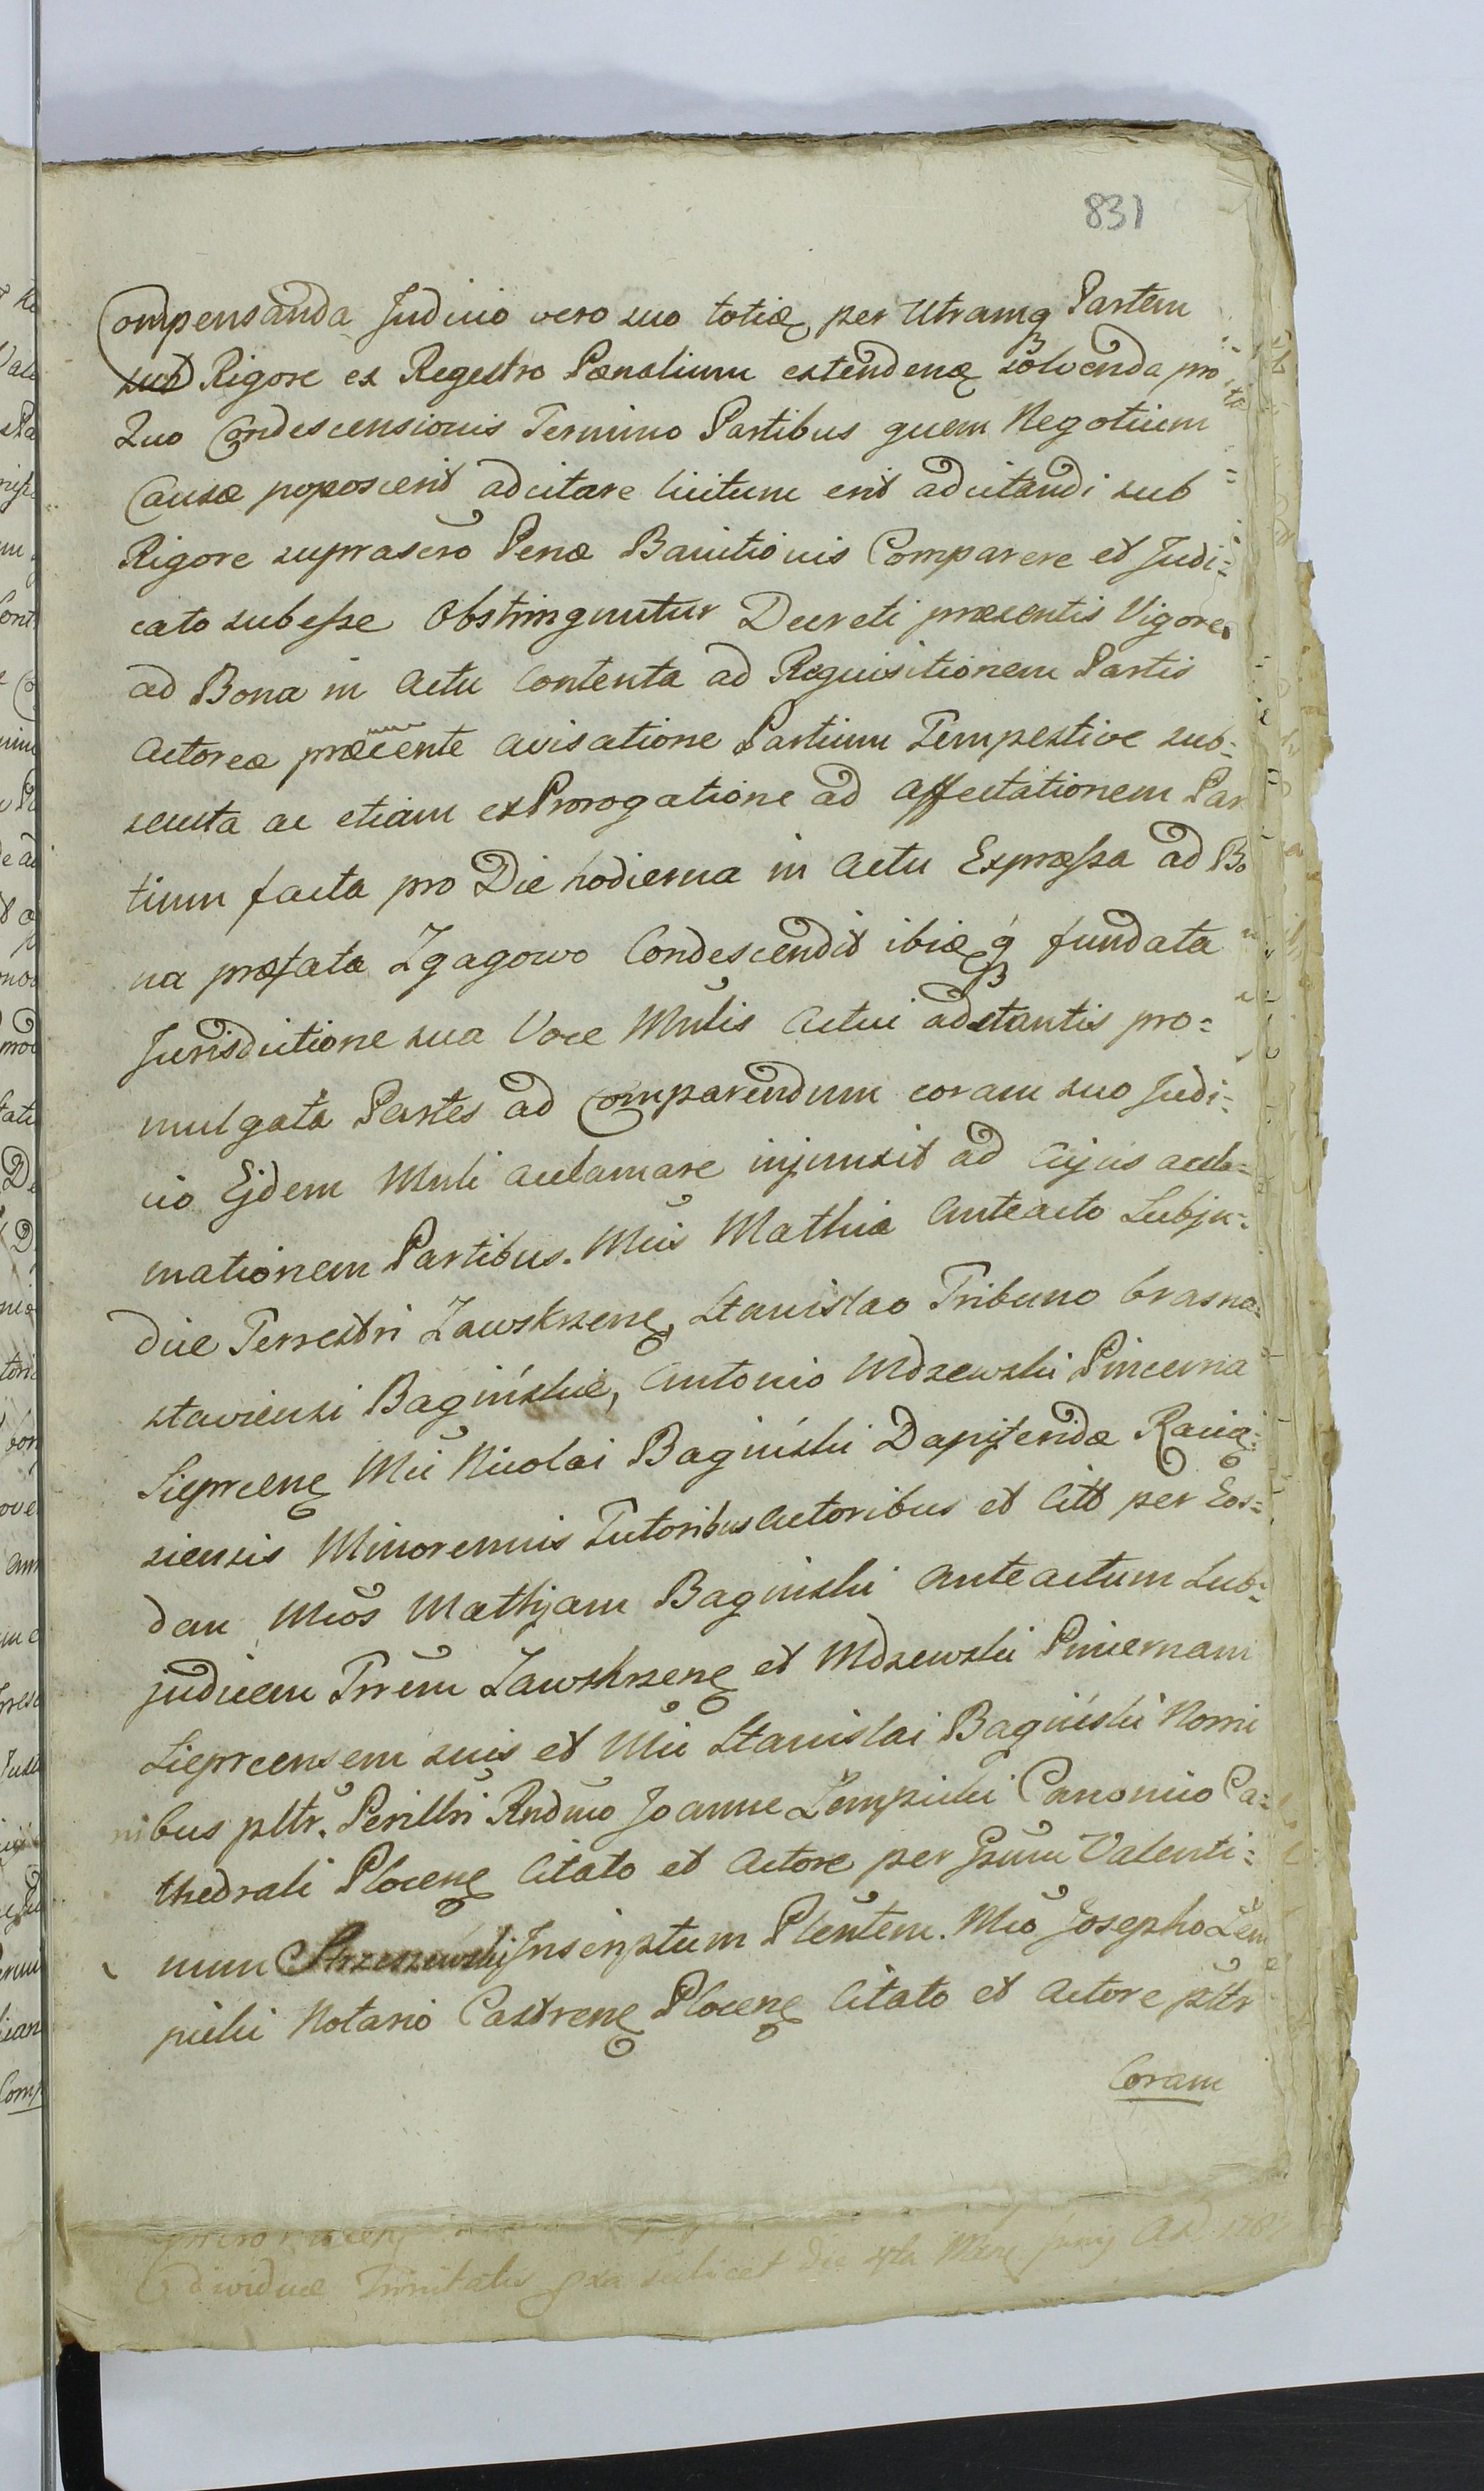 831
Compensanda Judicio vero suo totię per Utramq Partem
sub Rigore ex Regestro Pœnalium extendenę solvenda pro
Quo Condescensionis Termino Partibus quem Negotium
Causæ poposcerit adcitare licitum erit adcitandi sub
Rigore suprascro Penæ Banitionis Comparere et Judi=
cato subesse Obstringuntur Decreti præsentis Vigore
ad Bona in Actu Contenta ad Requisitionem Partis
Actoreæ avisatione Partium Tempestive sub=
secuta ac etiam ex Prorogatione ad affectationem Par
tium facta pro Die hodierna in Actu Expressa ad Bo
na præfata Zgagowo Condescendit ibię q fundata
Jurisdictione sua Voce Mnlis Actui adstantis pro=
mulgata Partes ad Comparendum coram suo Judi=
cio Ejdem Mnli acclamare injunxit ad Cujus accla=
mationem Partibus. Mcis Mathia Anteacto Subju=
dice Terrestri Zawskrzenę, Stanislao Tribuno Crasno=
staviensi Bagińskie, Antonio Mdzewski Pincerna
Sieprcenę Mci Nicolai Bagiński Dapiferidæ
siensis Minorennis Tutoribus Actoribus et Citt per Eos=
dem Mcos Mathjam Baginski Anteactum Sub=
judicem Trrem Zawskrzenę et Mdzewski Pincernam
Sieprcensem suis et Mci Stanislai Bagiński Nomi
nibus pltr. Perillri Rndmo Joanne Lempicki Canonico Ca=
thedrali Plocenę Citato et Actore per Gsum Valenti=
num Inscriptum Plentem. Mco Josepho Lem
picki Notario Castrenę Plocenę Citato et Actore pltr
Coram
dividuæ Trinitatis scilicet die Junij AD